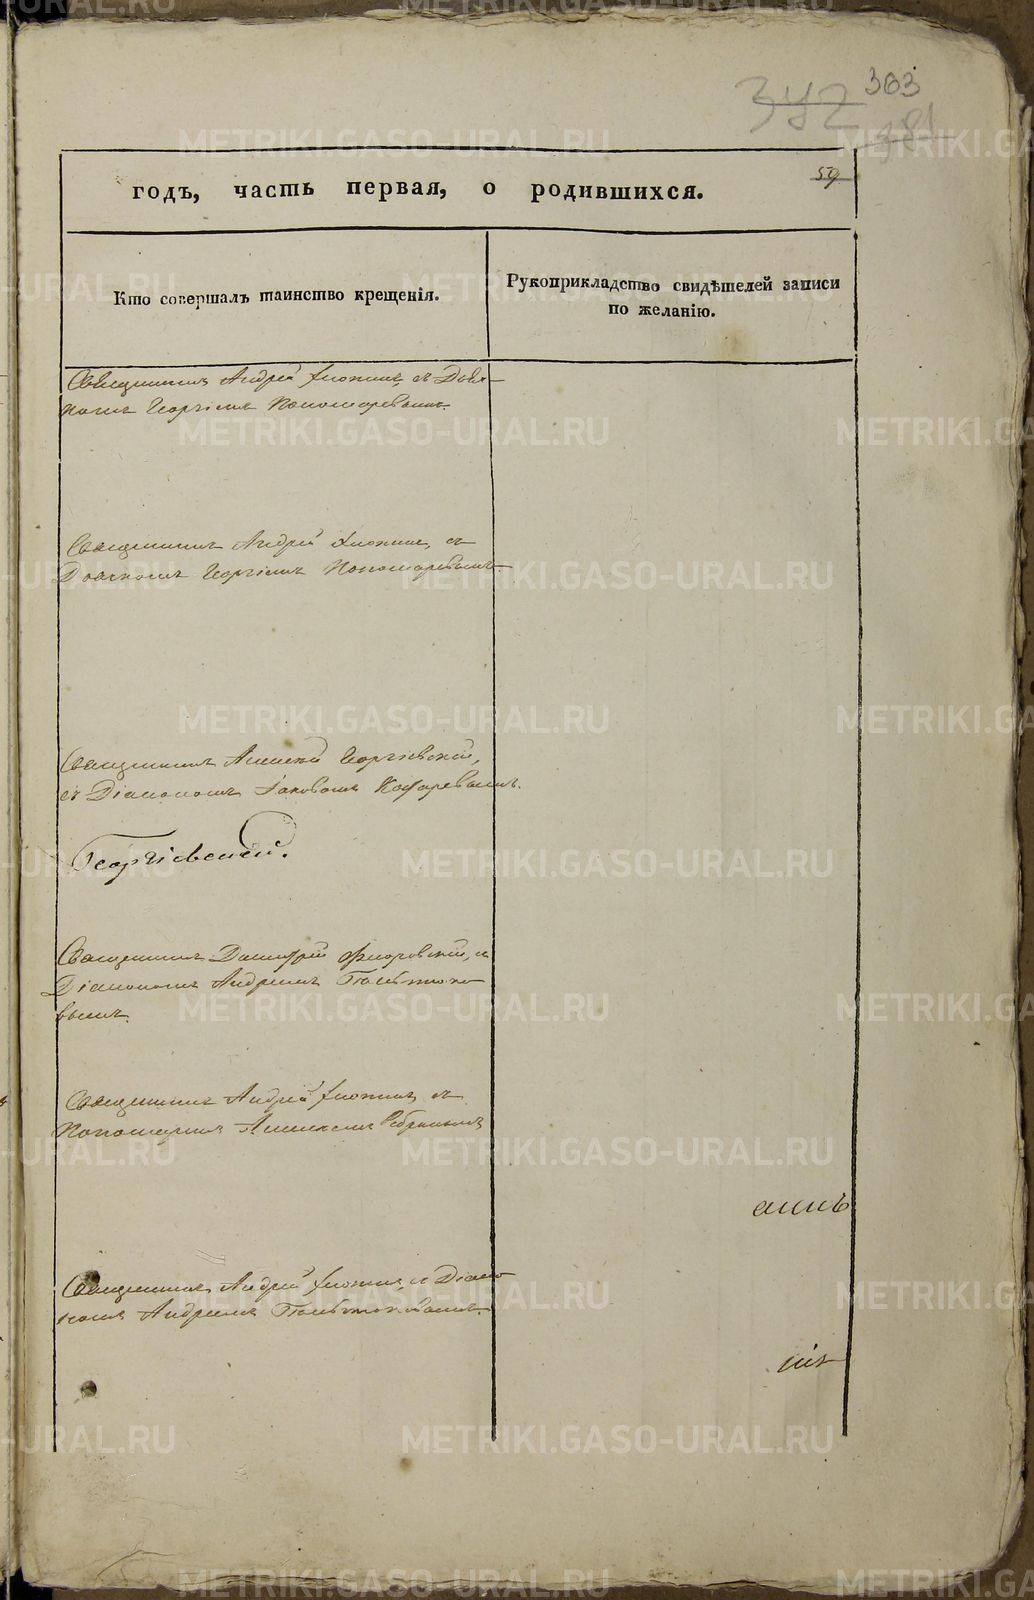 342 303
381
59
годъ, часть первая, о родившихся.
Кто совершалъ таинство крещенія.
Рукоприкладство свидѣтелей записи
по желанію.
Священникъ Андрей съ Діако-
номъ Георгіемъ Пономаревымъ.
Священникъ Андрей съ
Діакономъ Георгіемъ Пономаревымъ
Священникъ Алексій Георгіевскій,
съ Діакономъ Іаковомъ
Георгіевский.
Священникъ Димитрій Флоровскій, съ
Діакономъ Андреемъ
вымъ.
Священникъ Андрей съ
Пономаремъ Алексѣемъ
Священникъ Андрей съ Діако
номъ Андреемъ
METRIKI.GASO-URAL.RU